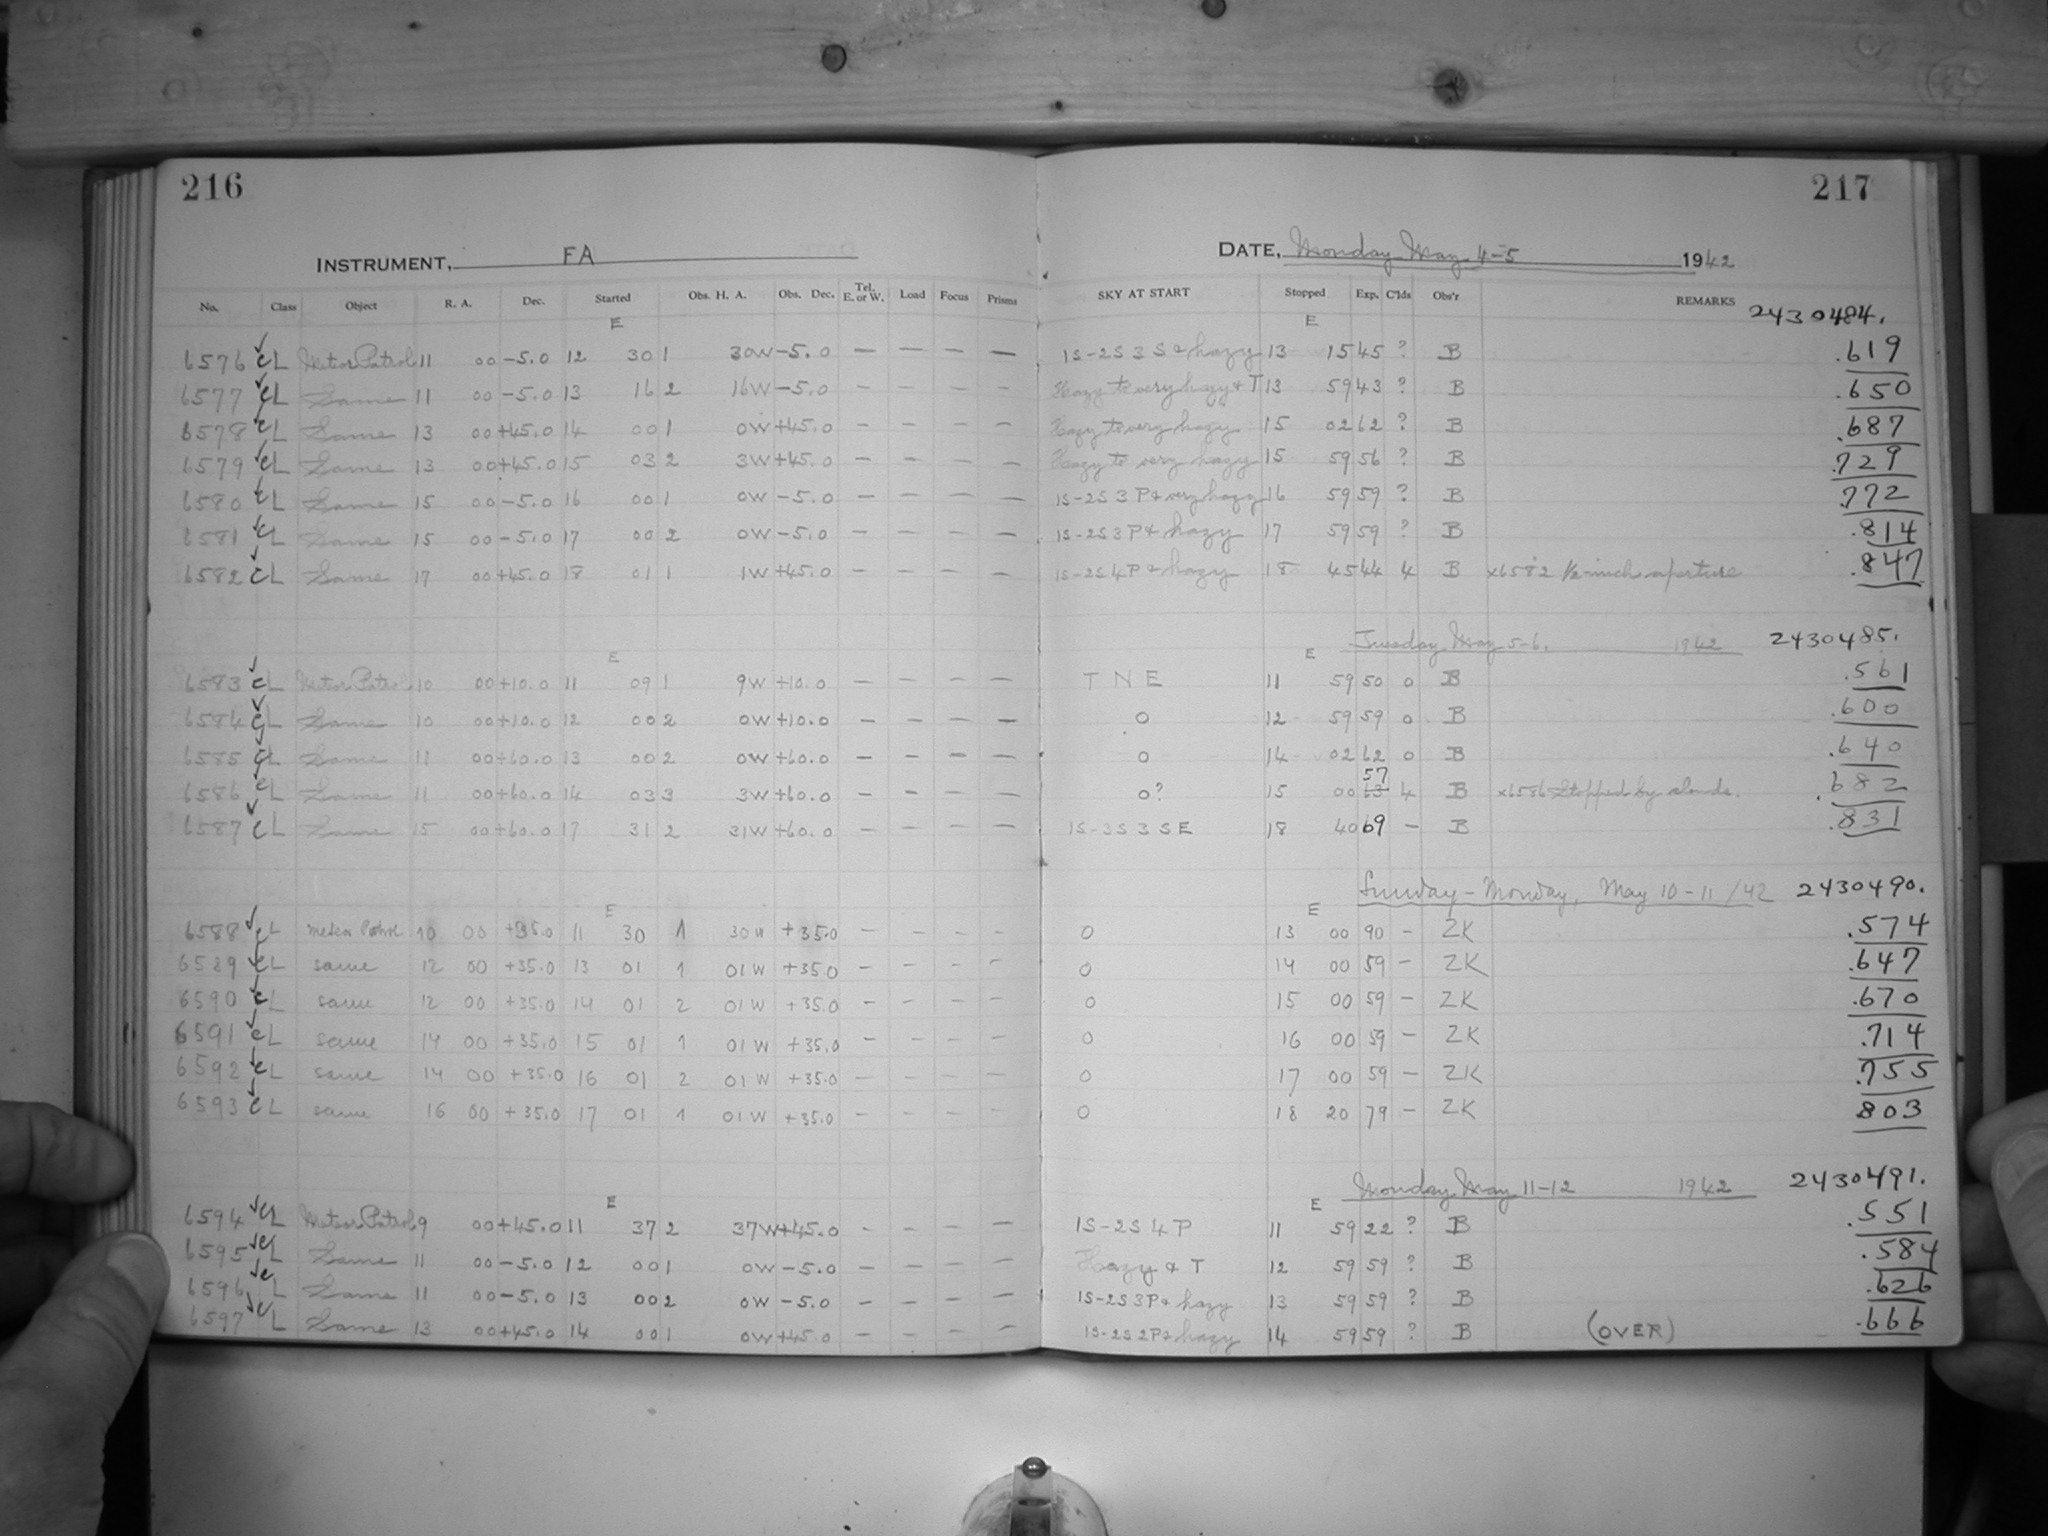 216
217
INSTRUMENT, FA
DATE, Monday May 4-5 1942
No. Class Object R. A. Dec. Started Obs. H. A. Obs. Dec. Tel. E. or W. Load Focus Prisms SKY AT START Stopped Exp. C'lds Obs'r REMARKS 2430484.
E E
6576 CL Meteor Patrol 11 00 -5.0 12 30 1 30W -5.0 — — — — 1S-2S 3 S & hazy 13 15 45 ? B .619
6577 CL Same 11 00 -5.0 13 16 2 16W -5.0 — — — — Hazy to very hazy & T 13 59 43 ? B .650
6578 CL Same 13 00 +45.0 14 00 1 0W +45.0 — — — — Hazy to very hazy 15 02 62 ? B .687
6579 CL Same 13 00 +45.0 15 03 2 3W +45.0 — — — — Hazy to very hazy 15 59 56 ? B .729
6580 CL Same 15 00 -5.0 16 00 1 0W -5.0 — — — — 1S-2S 3 P & very hazy 16 59 59 ? B .772
6581 CL Same 15 00 -5.0 17 00 2 0W -5.0 — — — — 1S-2S 3 P & hazy 17 59 59 ? B .814
6582 CL Same 17 00 +45.0 18 01 1 1W +45.0 — — — — 1S-2S 4 P & hazy 18 45 44 4 B x6582 ½-inch aperture .847
E E Tuesday May 5-6. 1942 2430485.
6583 CL Meteor Patrol 10 00 +10.0 11 09 1 9W +10.0 — — — — T N E 11 59 50 0 B .561
6584 CL Same 10 00 +10.0 12 00 2 0W +10.0 — — — — 0 12 59 59 0 B .600
6585 CL Same 11 00 +60.0 13 00 2 0W +60.0 — — — — 0 14 02 62 0 B .640
6586 CL Same 11 00 +60.0 14 03 3 3W +60.0 — — — — 0? 15 00 57 4 B x6586 Stopped by clouds. .682
6587 CL Same 15 00 +60.0 17 31 2 31W +60.0 — — — — 1S-3S 3 S E 18 40 69 — B .831
E E Sunday - Monday, May 10-11/42 2430490.
6588 CL Meteor Patrol 10 00 +35.0 11 30 1 30W +35.0 — — — — 0 13 00 90 — ZK .574
6589 CL same 12 00 +35.0 13 01 1 01W +35.0 — — — — 0 14 00 59 — ZK .647
6590 CL same 12 00 +35.0 14 01 2 01W +35.0 — — — — 0 15 00 59 — ZK .670
6591 CL same 14 00 +35.0 15 01 1 01W +35.0 — — — — 0 16 00 59 — ZK .714
6592 CL same 14 00 +35.0 16 01 2 01W +35.0 — — — — 0 17 00 59 — ZK .755
6593 CL same 16 00 +35.0 17 01 1 01W +35.0 — — — — 0 18 20 79 — ZK 803
E E Monday May 11-12 1942 2430491.
6594 CL Meteor Patrol 9 00 +45.0 11 37 2 37W +45.0 — — — — 1S-2S 4 P 11 59 22 ? B .551
6595 CL Same 11 00 -5.0 12 00 1 0W -5.0 — — — — Hazy & T 12 59 59 ? B .584
6596 CL Same 11 00 -5.0 13 00 2 0W -5.0 — — — — 1S-2S 3 P & hazy 13 59 59 ? B .626
6597 CL Same 13 00 +45.0 14 00 1 0W +45.0 — — — — 1S-2S 2 P & hazy 14 59 59 ? B (OVER) .666